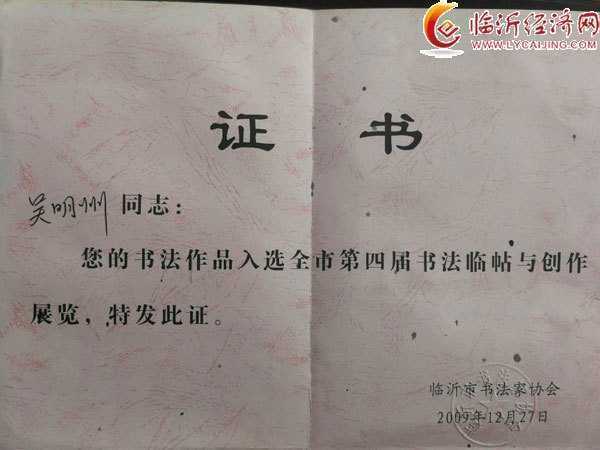 临沂经济网
WWW.LYCAIJING.COM
证 书
吴明州 同志：
您的书法作品入选全市第四届书法临帖与创作
展览，特发此证。
临沂市书法家协会
2009年12月27日